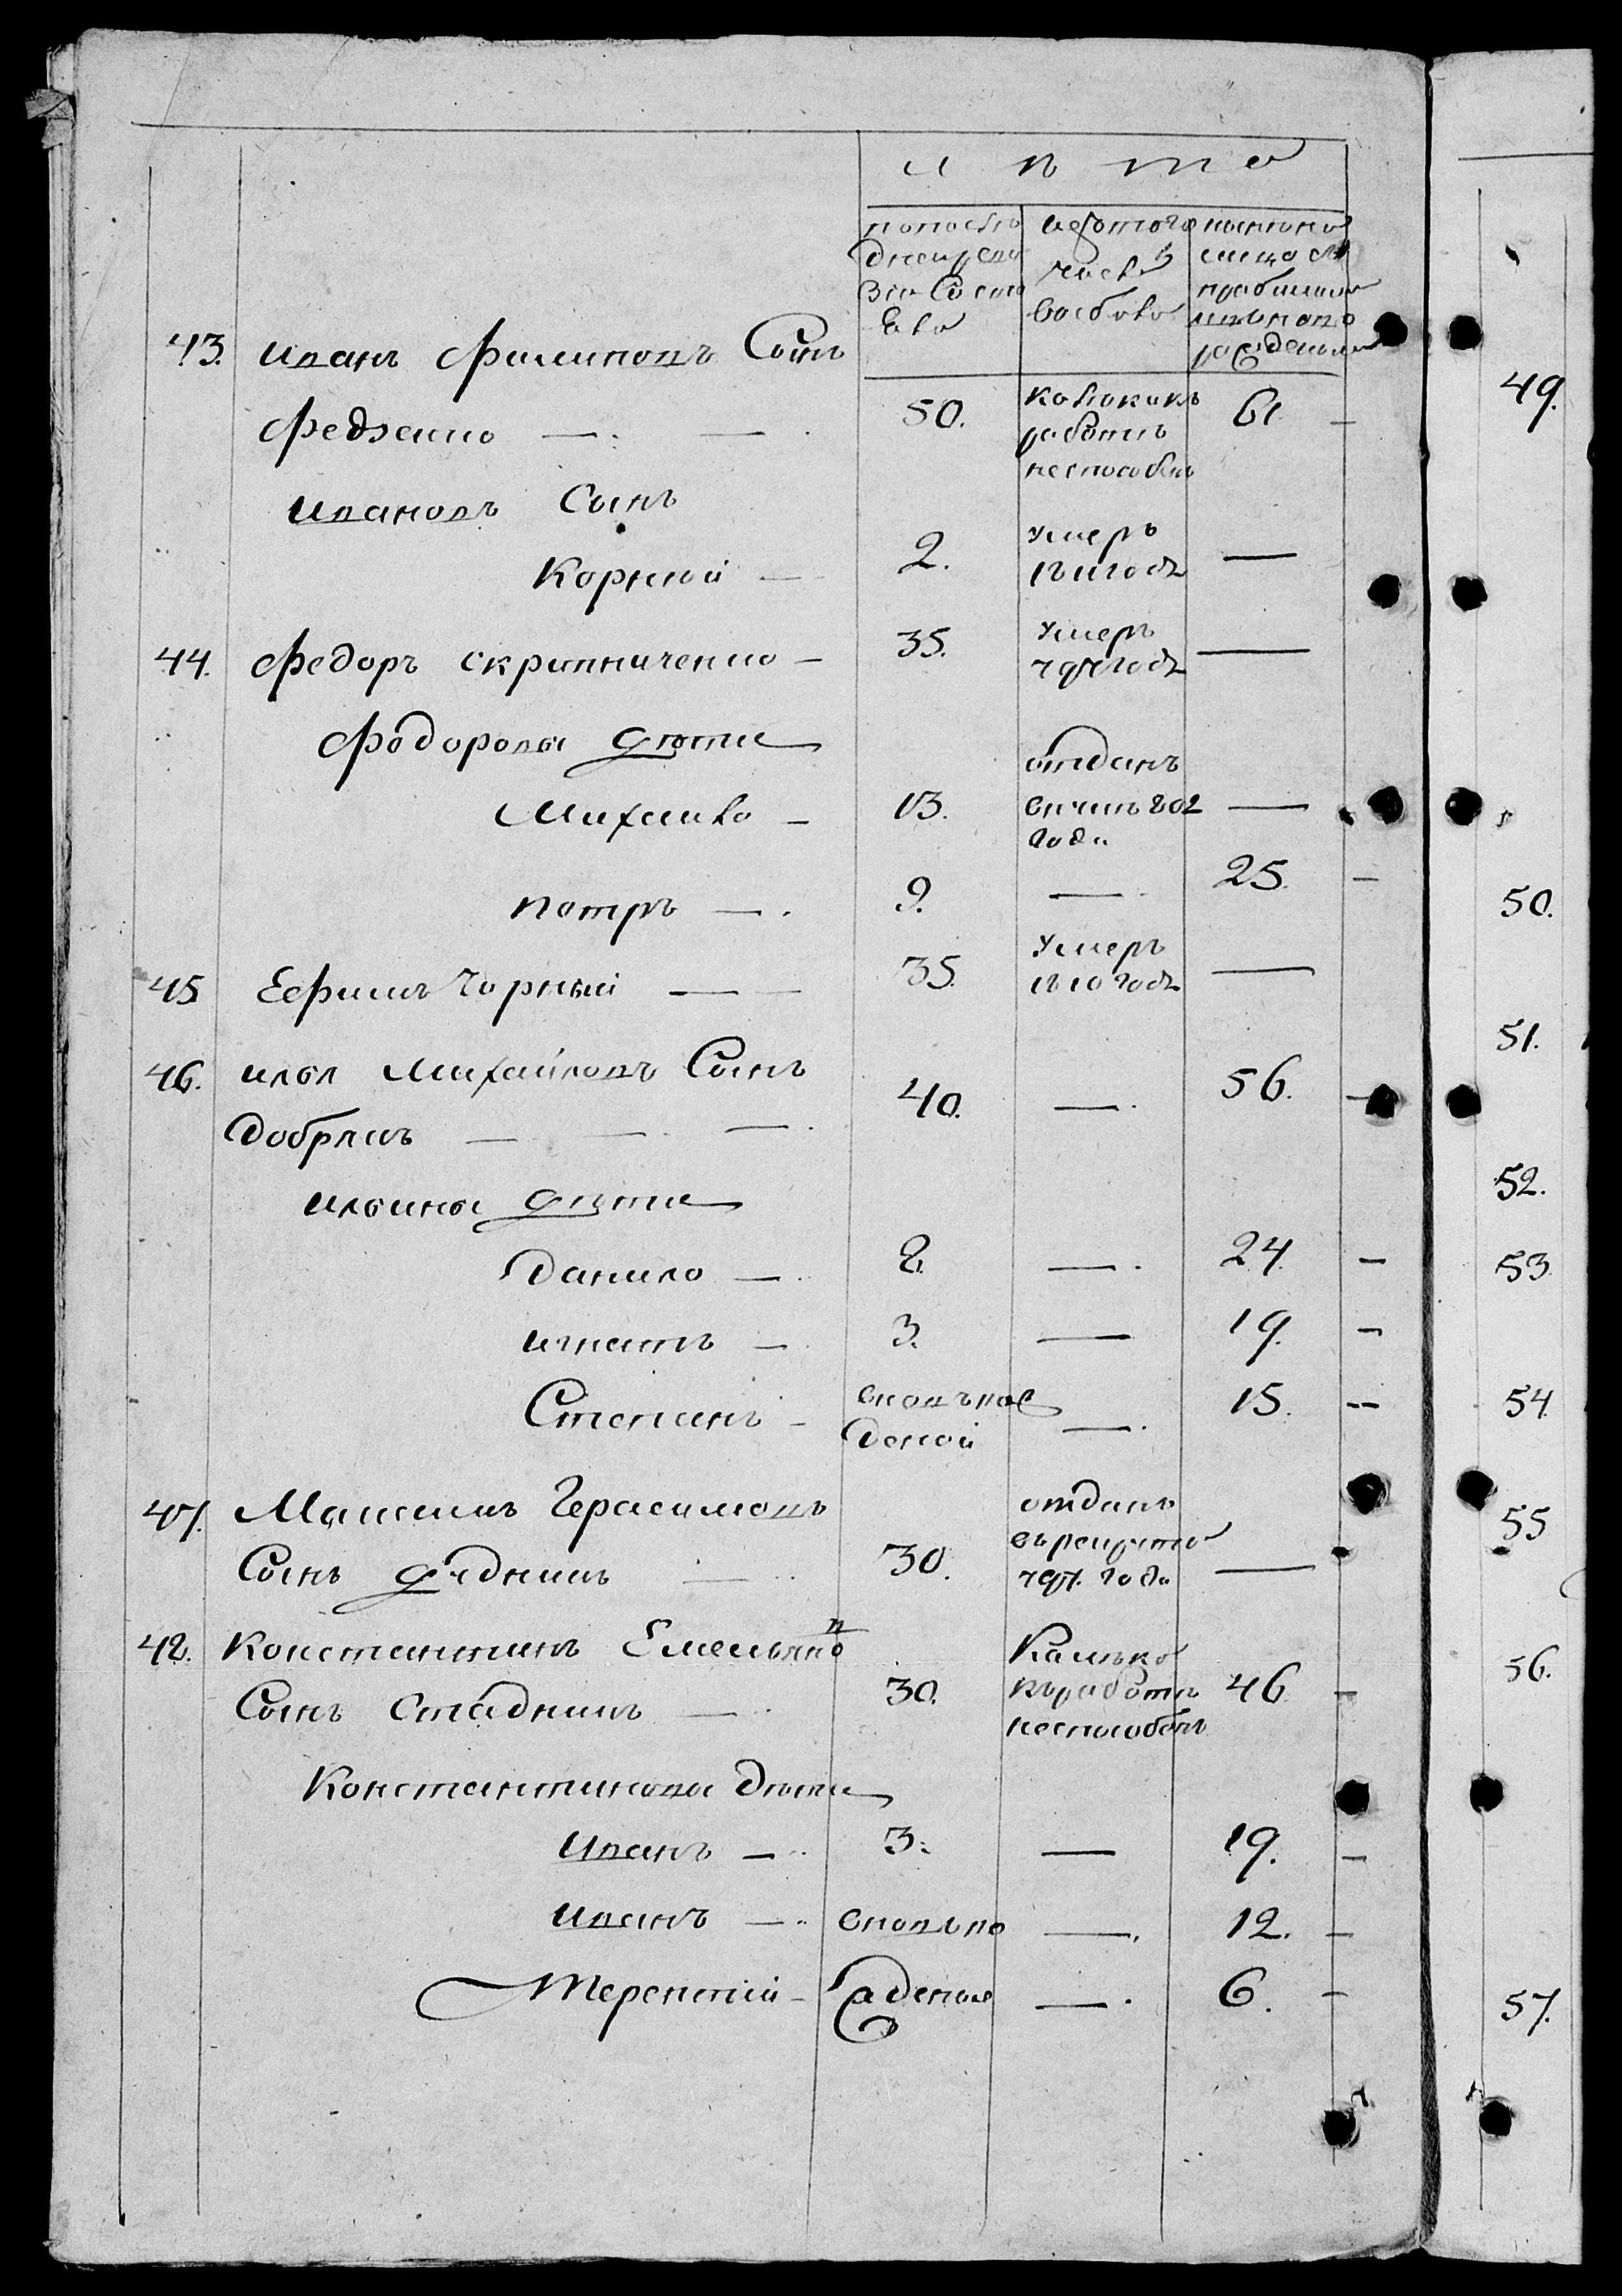 лѣта
попослѣ
дней реви
зіи состо
яло
изътого
числа
выбыло
нынѣ на
лицо съ
прибылыми
ивновь
рожденными
43. Иванъ Филиповъ Сынъ
Федченко — 50. 61 —
кработѣ
неспособенъ
Ивановъ Сынъ
Корній — 2. Умеръ
1811 годѣ —
44. Федоръ Скрипниченко — 35. Умеръ
797 годѣ —
Федоровы дѣти
Михайло — 13. отданъ
802 —
года
Петръ — 9. — 25. —
45 Ефимъ Чорный — 35. Умеръ
1810 годѣ —
46. Илья Михайловъ Сынъ
Добрянъ — 40. — 56. —
Ильины дѣти
Данило — 8. — 24. —
Игнатъ — 3. — 19. —
Степанъ — вновьрож
деной — 15. —
47. Максимъ Герасимовъ
Сынъ Дядникъ — 30. отданъ
въ рекруты
797. года —
48. Константинъ Емельяновъ
Сынъ Стадникъ — 30. 46 —
къработѣ
неспособенъ
Константиновы дѣти
Иванъ — 3. — 19. —
Иванъ — вновьро — 12. —
Терентій — жденые — 6. —
49.
50.
51.
52.
53
54
55
56.
57.